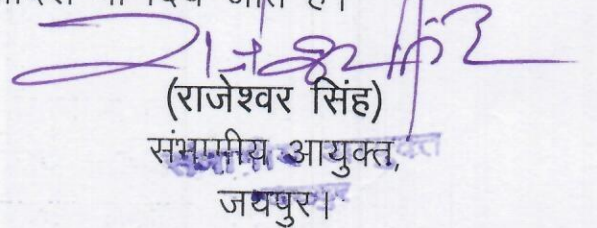 जाते हैं।
(राजेश्वर सिंह)
संभागीय आयुक्त,
जयपुर।